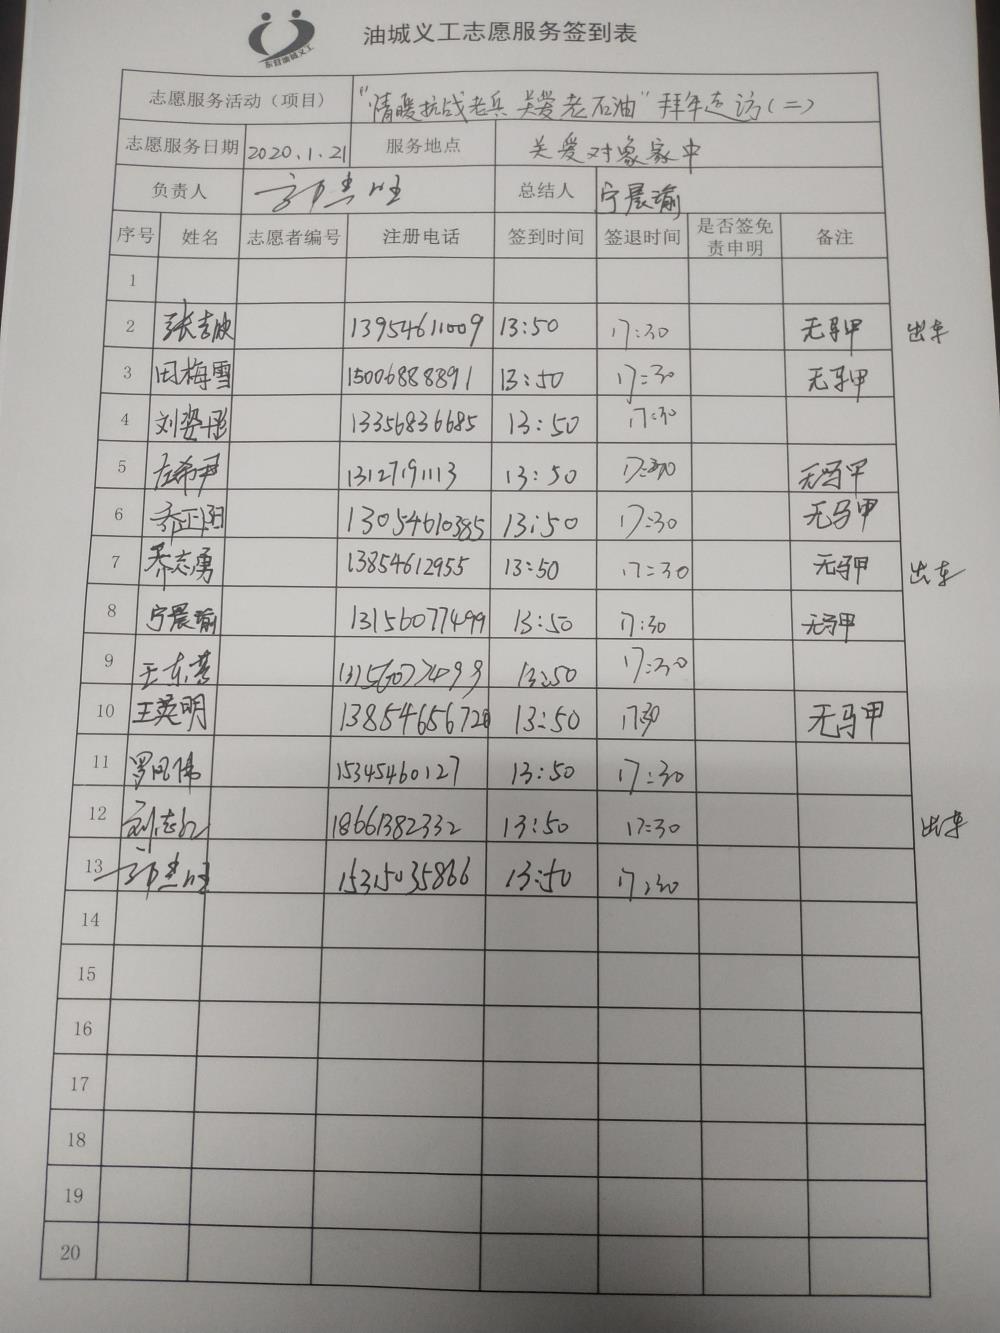 东营油城义工
油城义工志愿服务签到表
志愿服务活动（项目） “情暖抗战老兵 关爱老石油”拜年走访（二）
志愿服务日期 2020.1.21 服务地点 关爱对象家中
负责人 总结人 宁晨瑜
序号 姓名 志愿者编号 注册电话 签到时间 签退时间 是否签免责申明 备注
1
2 张吉欣 13954611009 13:50 17:30 无马甲 出车
3 田梅雪 15006888891 13:50 17:30 无马甲
4 刘姿彤 13356836685 13:50 17:30
5 左希尹 13127191113 13:50 17:30 无马甲
6 乔正阳 13054610385 13:50 17:30 无马甲
7 乔志勇 13854612955 13:50 17:30 无马甲 出车
8 宁晨瑜 13156077499 13:50 17:30 无马甲
9 王东 13:50 17:30
10 王英明 13854656720 13:50 17:30 无马甲
11 罗凤伟 15345460127 13:50 17:30
12 刘志 18661382332 13:50 17:30 出车
13 15315035866 13:50 17:30
14
15
16
17
18
19
20